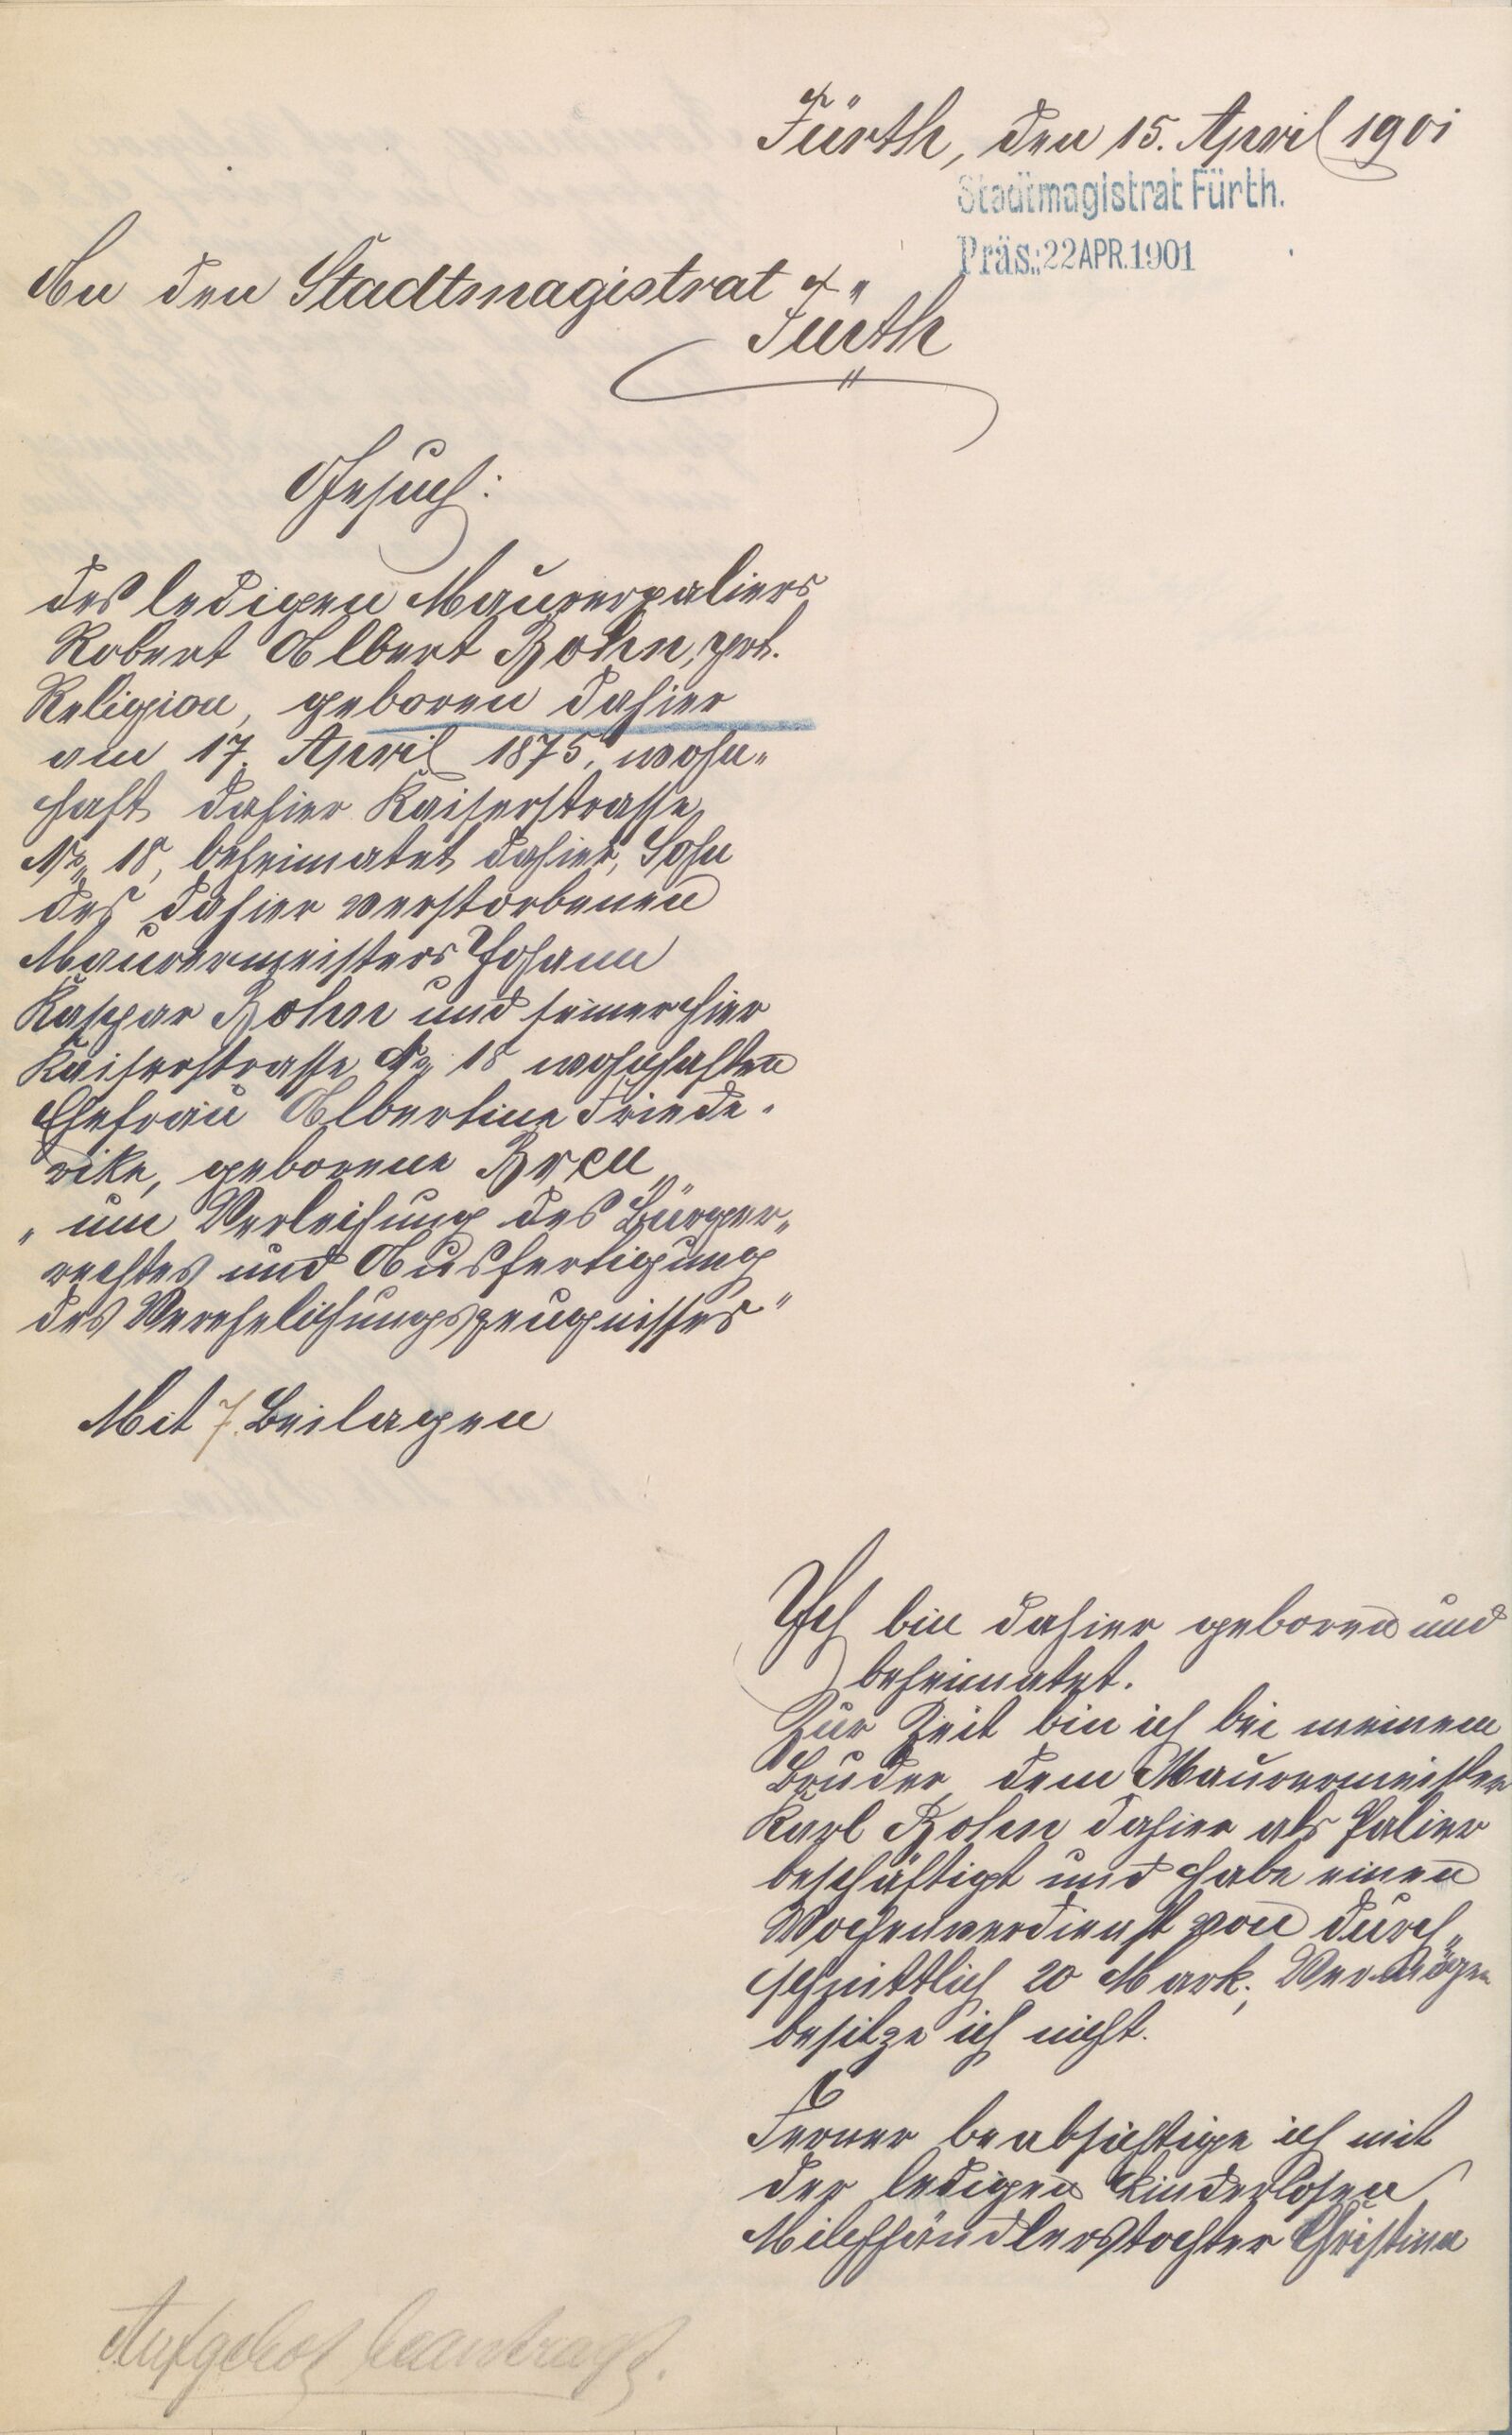 Fürth, den 15. April 1901
Stadtmagistrat Fürth.
Präs.: 22 APR. 1901
An den Stadtmagistrat
Fürth
Gesuch:
des ledigen Maurerpaliers
Robert Albert Bohn, prt.
Religion, geboren dahier
am 17. April 1875, wohn„
haft dahier Kaiserstrasse
No. 18, beheimatet dahier, Sohn
des dahier verstorbenen
Maurermeisters Johann
Kaspar Bohn und seiner hier
Kaiserstrasse No. 18 wohnhaften
Ehefrau Albertine Friede-
rike, geborene Breu
„um Verleihung des Bürger„
rechtes und Ausfertigung
des Verehelichungszeugnisses"
Mit 7 Beilagen
Ich bin dahier geboren und
beheimatet.
Zur Zeit bin ich bei meinem
Bruder, dem Maurermeister
Karl Bohn dahier als Palier
beschäftigt und habe einen
Wochenverdienst von durch„
schnittlich 20 Mark; Vermögen
besitze ich nicht.
Ferner beabsichtige ich mit
der ledigen kinderlosen
Milchhändlerstochter Christina
Aufgebot beantragt.